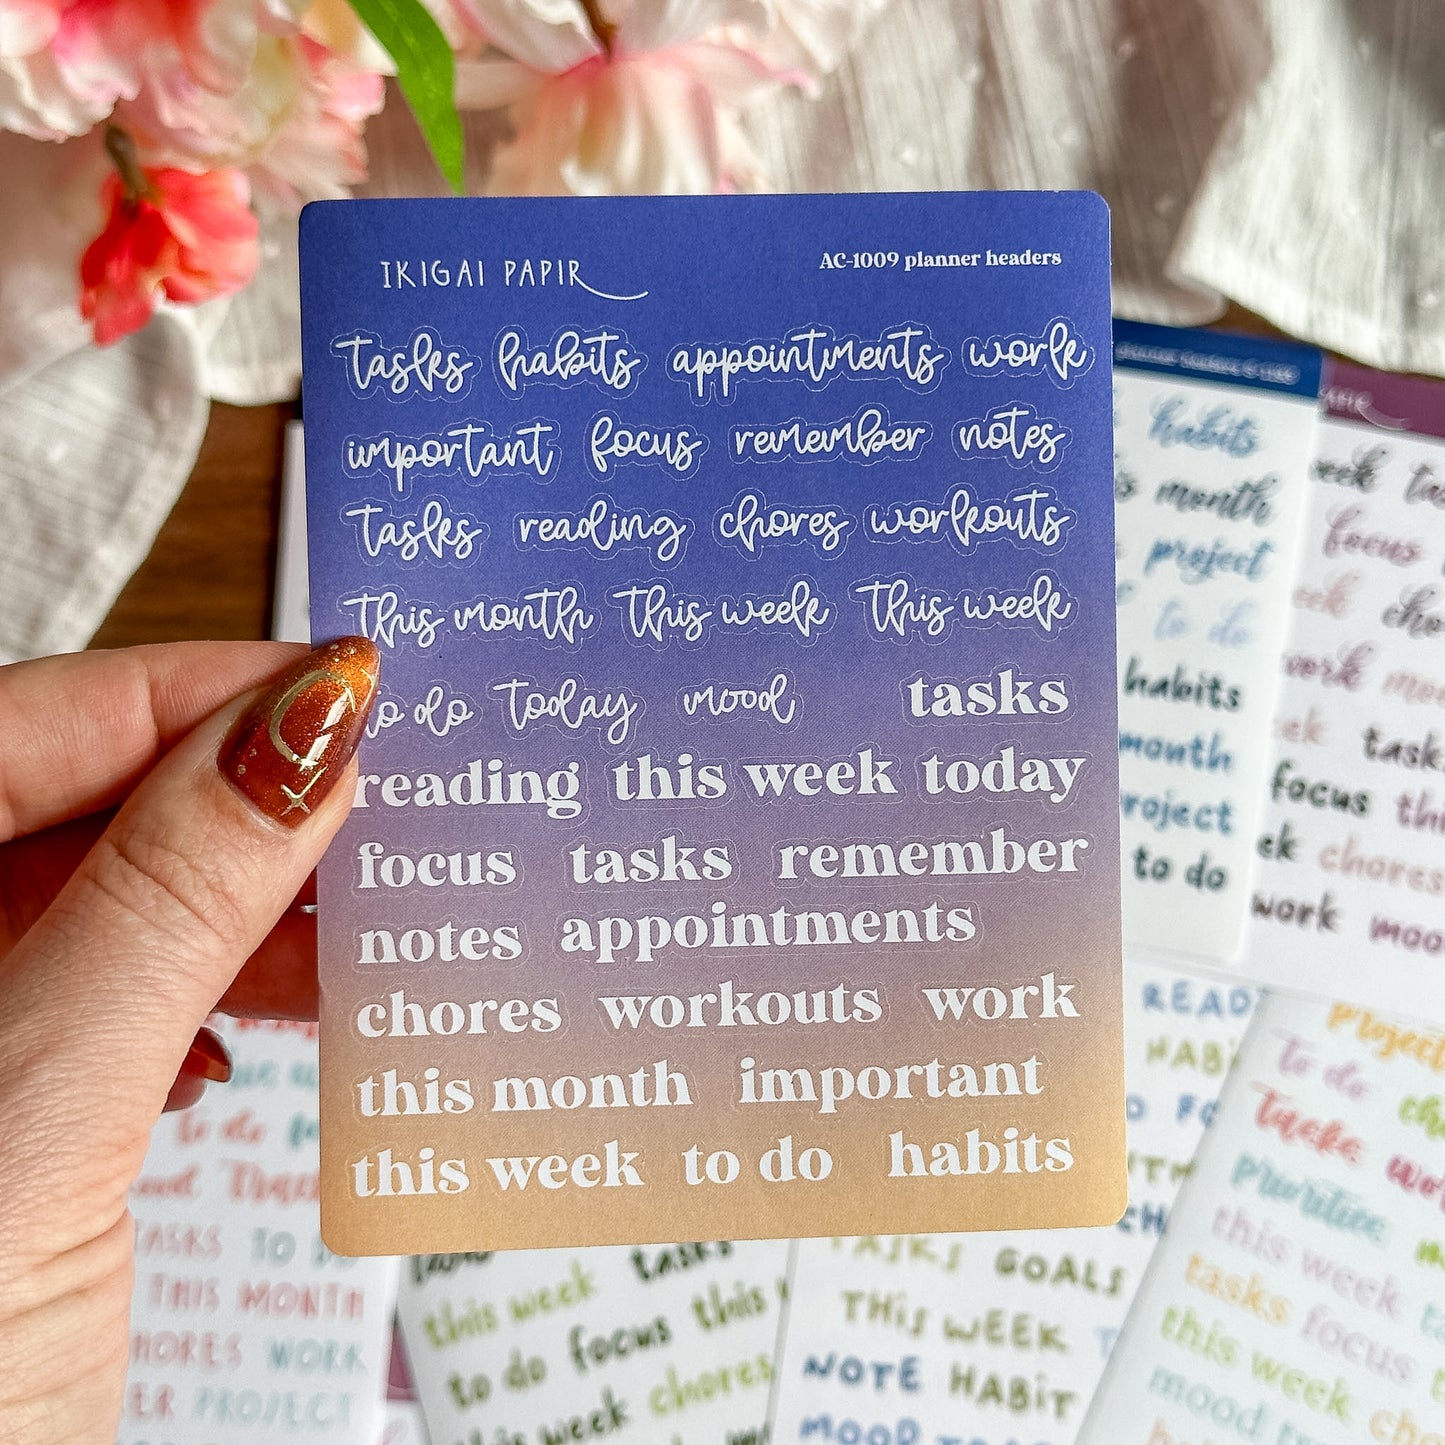 IKIGAI PAPIR
AC-1009 planner headers
tasks habits appointments work
important focus remember notes
tasks reading chores workouts
this month this week this week
to do today mood tasks
reading this week today
focus tasks remember
notes appointments
chores workouts work
this month important
this week to do habits
habits
month
project
to do
habits
month
project
to do
focus
chores
task
focus
chores
work
READ
HABI
projec
to do
priorities
this week
tasks focus
this week
mood
TASKS TO DO
THIS MONTH
WORK
PROJECT
tasks
this week
to do focus this
chores
week
TASKS GOALS
THIS WEEK
NOTE HABIT
MOOD